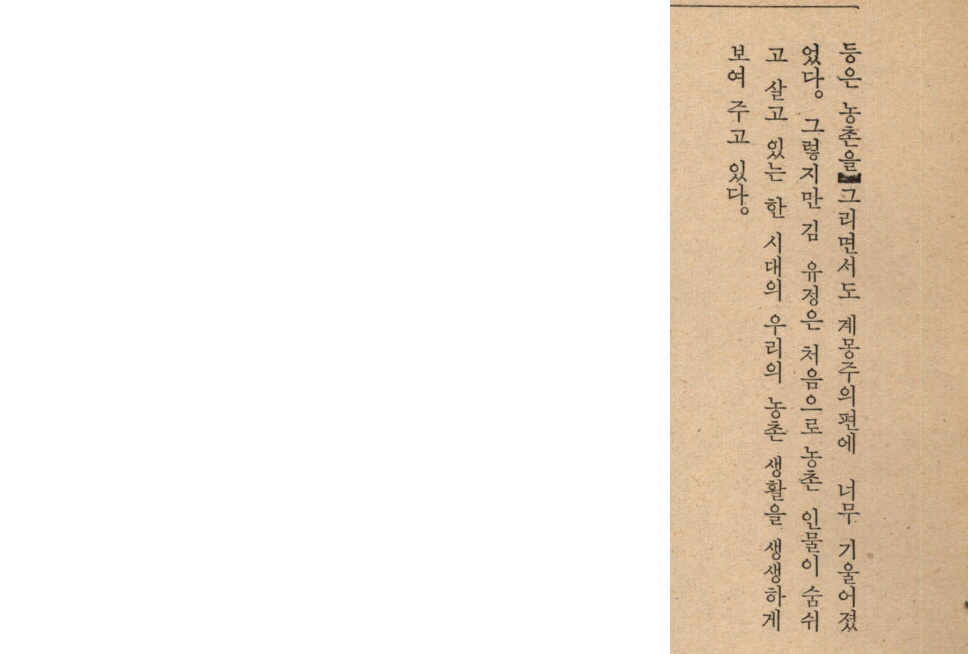 등은 농촌을 그리면서도 계몽주의편에 너무 기울어졌
었다。 그렇지만 김 유정은 처음으로 농촌 인물이 숨쉬
고 살고 있는 한 시대의 우리의 농촌 생활을 생생하게
보여 주고 있다。